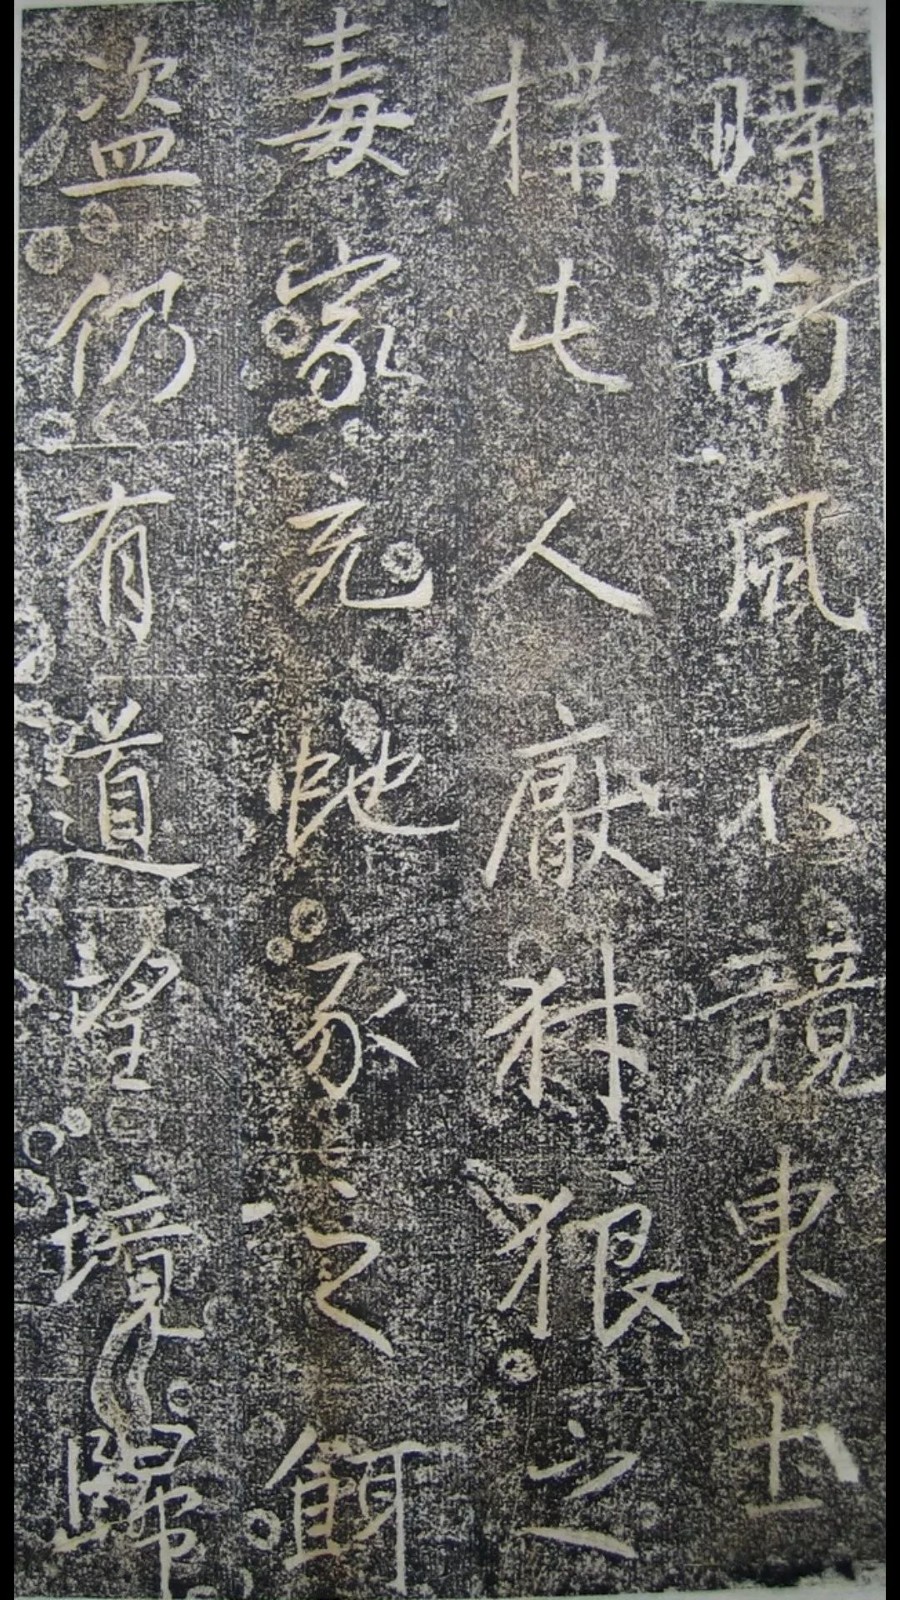 時南風不競東土
構屯人厭犲狼之
毒家充虵豕之餌
盜仍有道望境歸